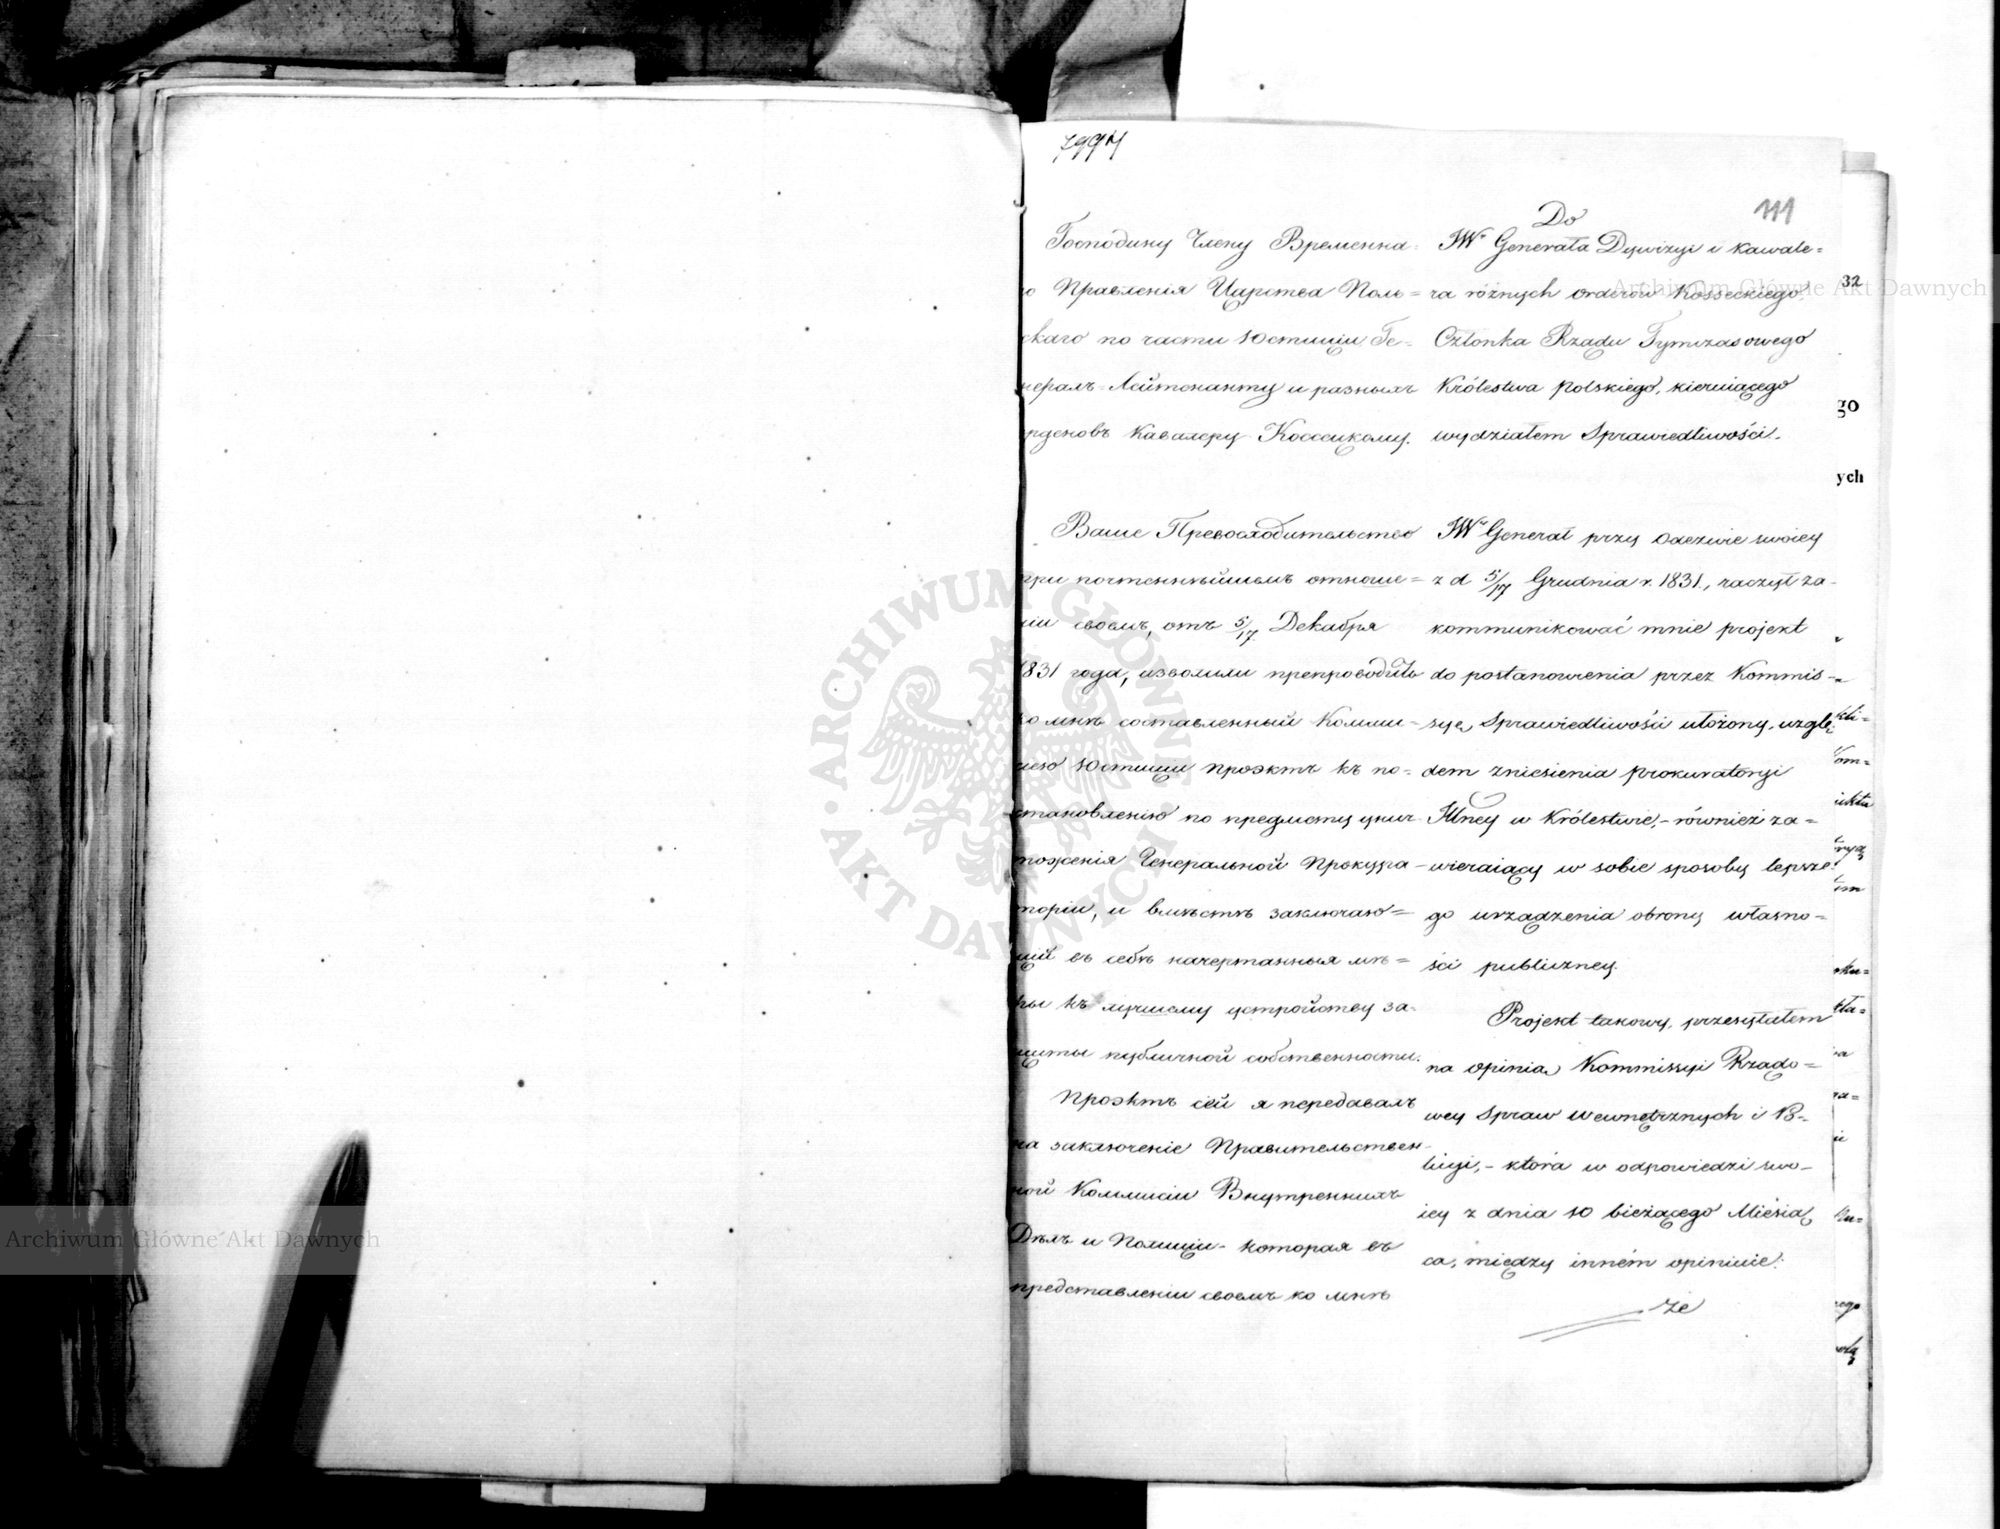 7997
111
Господину Члену Временна-
го Правленія Царства Поль=
скаго по части Юстиціи Ге=
нералъ-Лейтенанту и разныхъ
орденовъ Кавалеру Коссецкому.
Ваше Превосходительство
при почтеннѣйшемъ отноше=
ніи своемъ, отъ 5/17 Декабря
1831 года, изволили препроводить
ко мнѣ составленный Комми=
сіею Юстиціи проэктъ къ по=
становленію по предмету унич-
тоженія Генеральной Прокура-
торіи, и вмѣстѣ заключаю=
щій въ себѣ начертанныя мѣ=
ры къ лучшему устройству за-
щиты публичной собственности.
Проэктъ сей я передавалъ
на заключеніе Правительствен-
ной Коммисіи Внутреннихъ
Дѣлъ и Полиціи - которая въ
представленіи своемъ ко мнѣ
Do
JWº Generała Dywizyi i Kawale=
ra różnych orderów Kosseckiego
Członka Rządu Tymczasowego
Królestwa Polskiego, kieruiącego
wydziałem Sprawiedliwości.
JWº Generał przy Odezwie swoiey
z d 5/17 Grudnia r. 1831, raczył za-
kommunikować mnie projekt
do postanowienia przez Kommis-
syę Sprawiedliwości ułożony, wzglę-
dem zniesienia Prokuratoryi
Jlney w Królestwie,- również za=
wieraiący w sobie sposoby lepsze-
go urządzenia obrony własno=
ści publiczney.
Projekt takowy, przesyłałem
na opinią Kommissyi Rządo=
wey Spraw Wewnętrznych i Po-
licyi,- która w odpowiedzi swo-
iey z dnia 10 bieżącego Miesią-
ca, między inném opiniuie:
że
32
go
ych
Archiwum Główne Akt Dawnych
Archiwum Główne Akt Dawnych
ARCHIWUM GŁÓWNE · AKT DAWNYCH ·